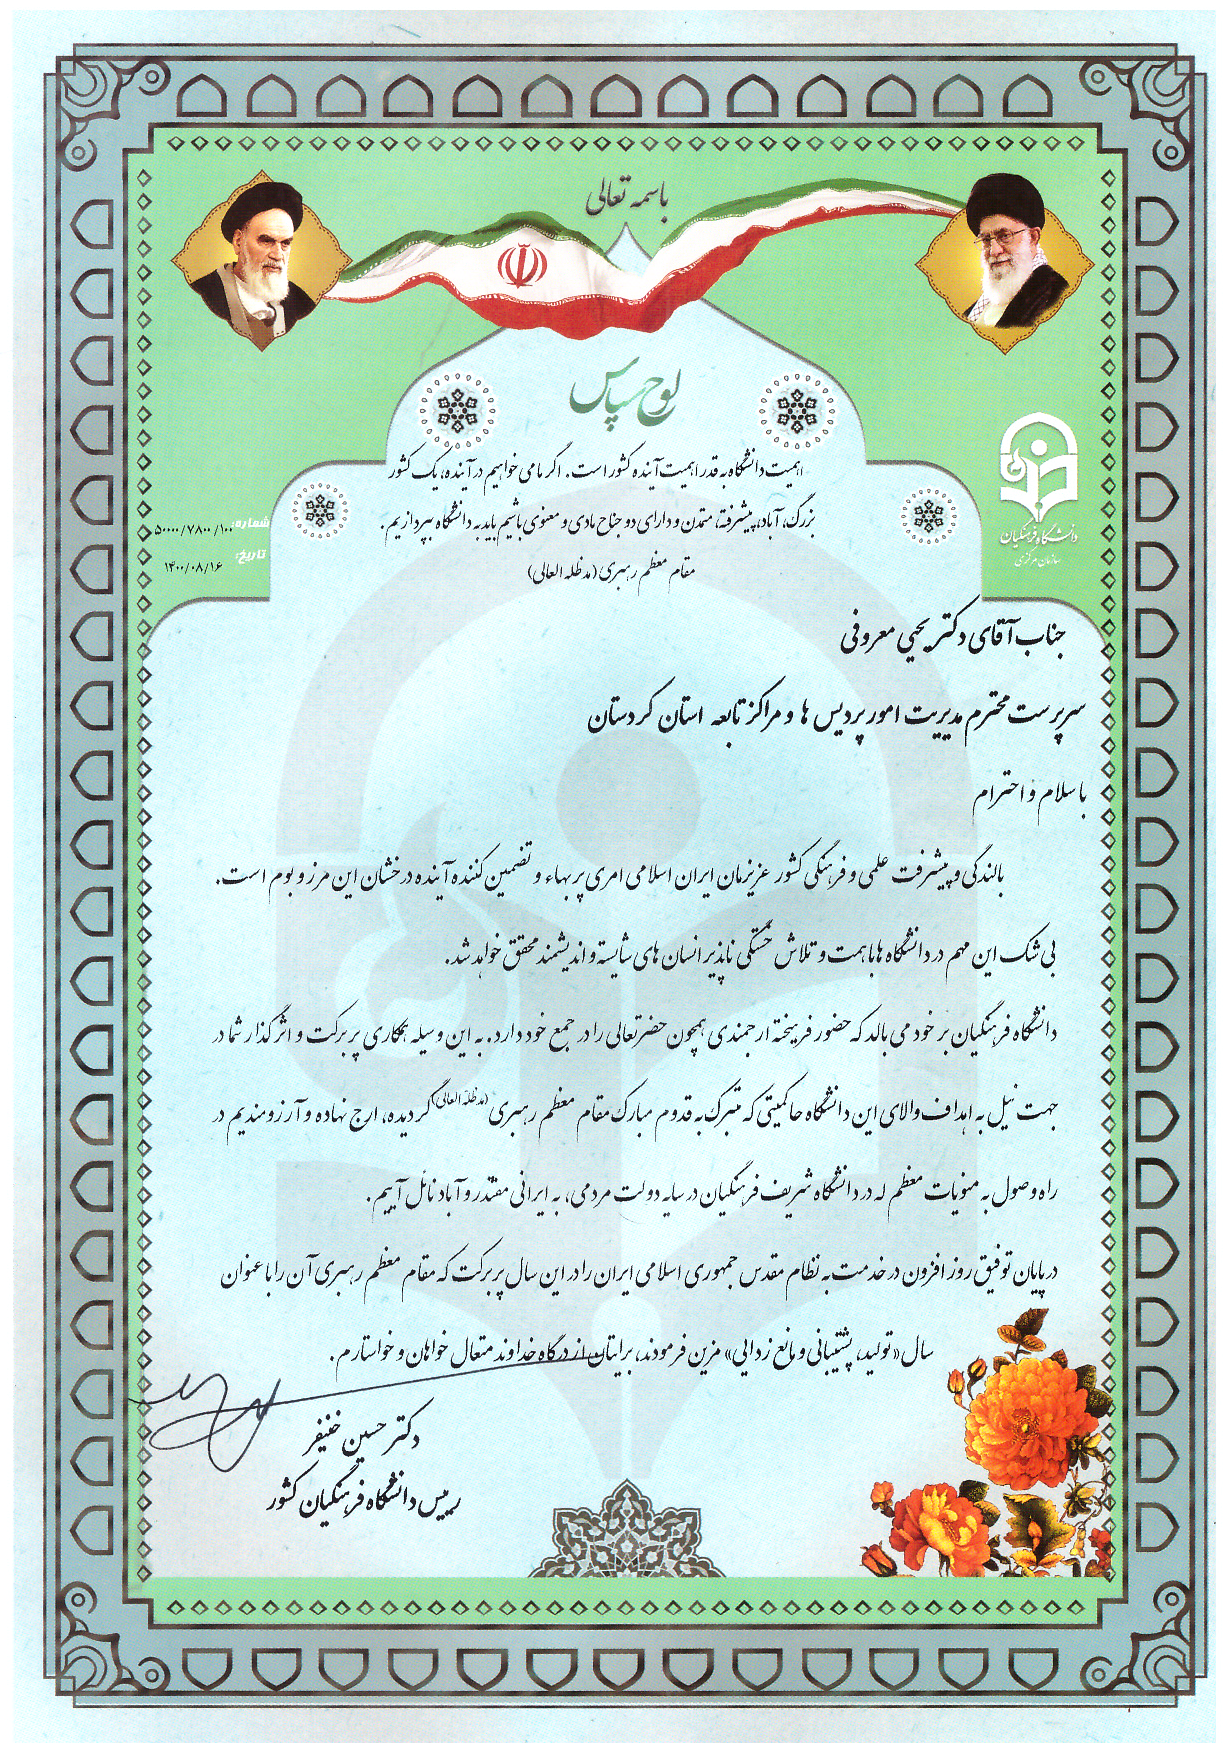 باسمه تعالی
لوح سپاس
اهمیت دانشگاه به قدر اهمیت آینده کشور است. اگر ما می خواهیم در آینده، یک کشور
بزرگ، آباد، پیشرفته، متمدن و دارای دو جناح مادی و معنوی باشیم باید به دانشگاه بپردازیم.
مقام معظم رهبری (مدظله العالی)
دانشگاه فرهنگیان
سازمان مرکزی
شماره: ۵۰۰۰۰/۷۸۰۰/۱۰۰
تاریخ: ۱۴۰۰/۰۸/۱۶
جناب آقای دکتر یحیی معروفی
سرپرست محترم مدیریت امور پردیس ها و مراکز تابعه استان کردستان
با سلام و احترام
بالندگی و پیشرفت علمی و فرهنگی کشور عزیزمان ایران اسلامی امری پر بهاء و تضمین کننده آینده درخشان این مرز و بوم است.
بی شک این مهم در دانشگاه ها با همت و تلاش خستگی ناپذیر انسان های شایسته و اندیشمند محقق خواهد شد.
دانشگاه فرهنگیان بر خود می بالد که حضور فریخته ارجمندی همچون حضرتعالی را در جمع خود دارد. به این وسیله همکاری پر برکت و اثر گذار شما در
جهت نیل به اهداف والای این دانشگاه حاکمیتی که متبرک به قدوم مبارک مقام معظم رهبری (مدظله العالی) گردیده، ارج نهاده و آرزومندیم در
راه وصول به منویات معظم له در دانشگاه شریف فرهنگیان در سایه دولت مردمی، به ایرانی مقتدر و آباد نائل آییم.
در پایان توفیق روز افزون در خدمت به نظام مقدس جمهوری اسلامی ایران را در این سال پر برکت که مقام معظم رهبری آن را با عنوان
سال «تولید، پشتیبانی و مانع زدایی» مزین فرمودند، برایتان از درگاه خداوند متعال خواهان و خواستارم.
دکتر حسین خنیفر
رییس دانشگاه فرهنگیان کشور